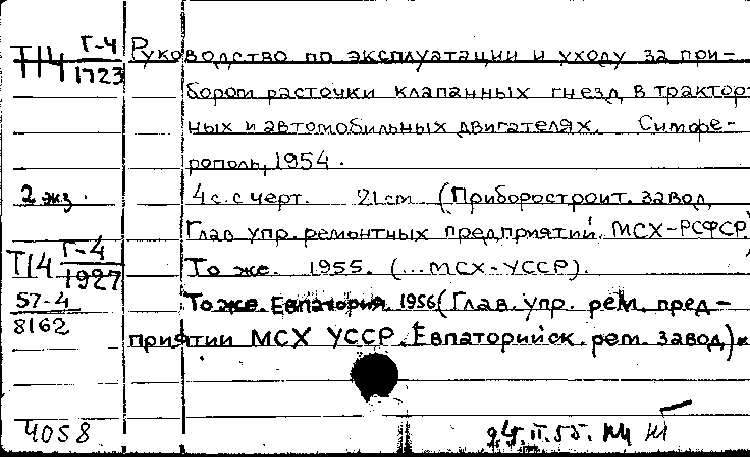 Т14 Г-4
1723
Руководство по эксплуатации и уходу за при-
бором расточки клапанных гнезд в трактор-
ных и автомобильных двигателях. Симфе-
рополь, 1954.
2 экз.
4 с. с черт. 21 cm (Приборостроит. завод,
Глав. упр. ремонтных предприятий МСХ-РСФСР)
Т14 Г-4
1927
То же. 1955. (...МСХ-УССР).
57-4
8162
То же. Евпатория. 1956 (Глав. упр. рем. пред-
приятий МСХ УССР. Евпаторийск. рем. завод)
4058
24.II.55.